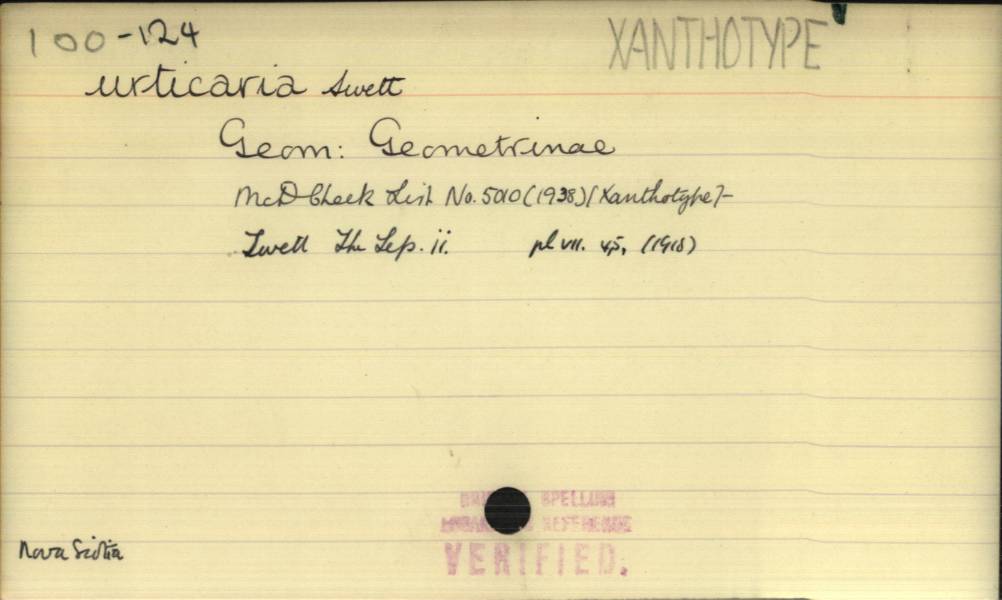 100-124 XANTHOTYPE
urticaria Swett
Geom: Geometrinae
McD Check List No. 5010 (1938) [Xanthotype]-
Swett The Lep. ii. pl VII. 45, (1918)
SPELLING
REFERENCE
VERIFIED.
Nova Scotia